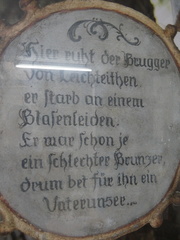 Hier ruht der Brugger
von Leichleithen,
er starb an einem
Blasenleiden.
Er war schon je
ein schlechter Brunzer,
drum bet für ihn ein
Vaterunser...